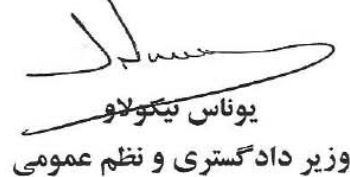 یوناس نیکولاو
وزیر دادگستری و نظم عمومی